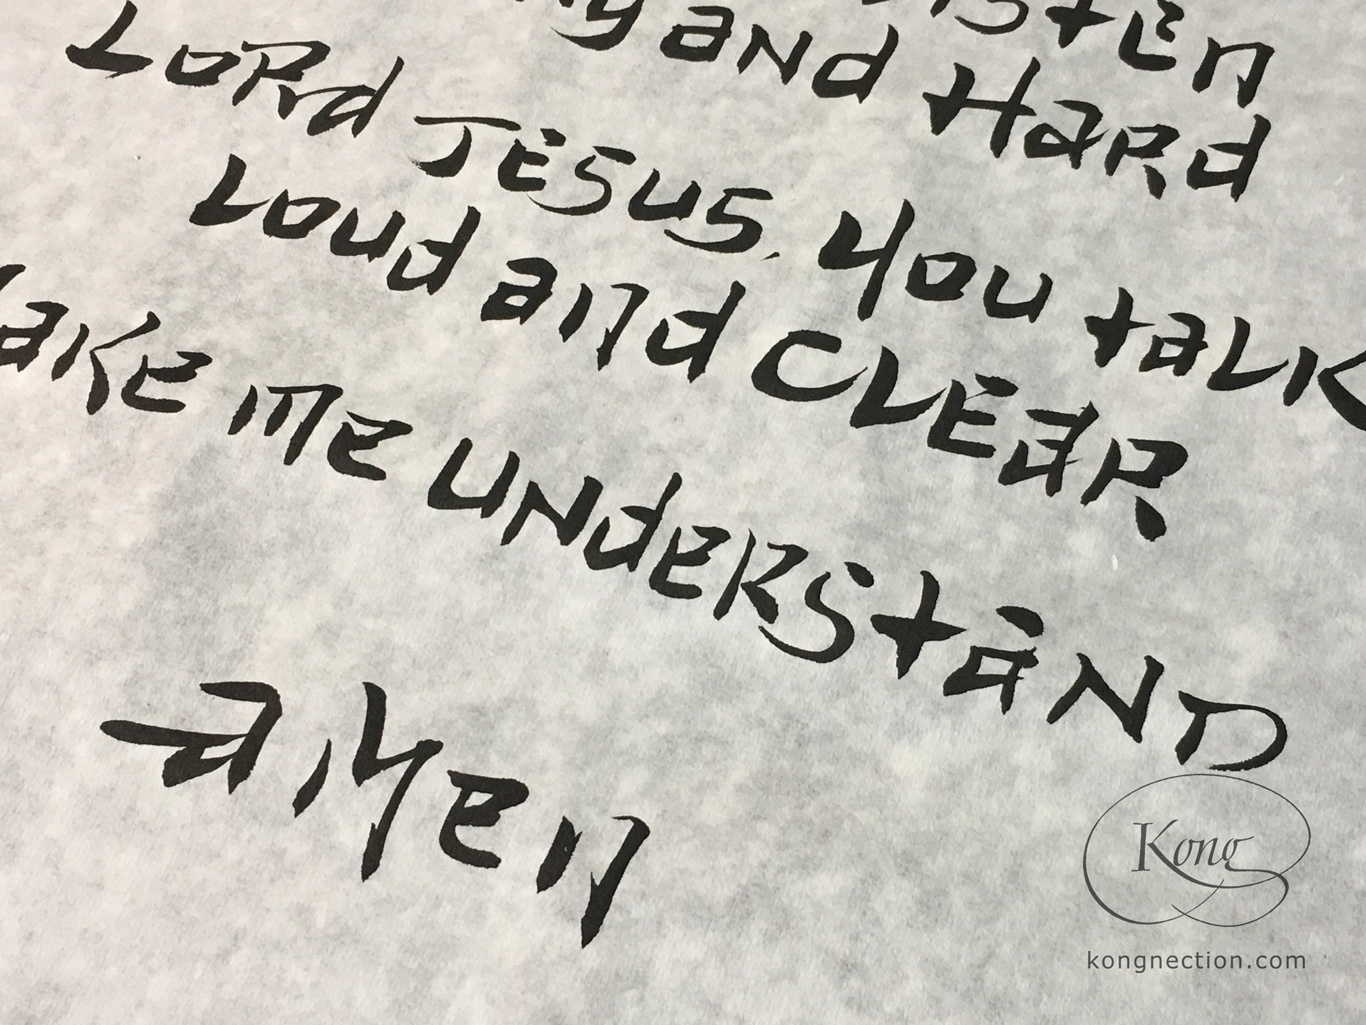 and Hard
Lord Jesus, you talk
Loud and Clear
Make me understand
Amen
Kong
kongnection.com